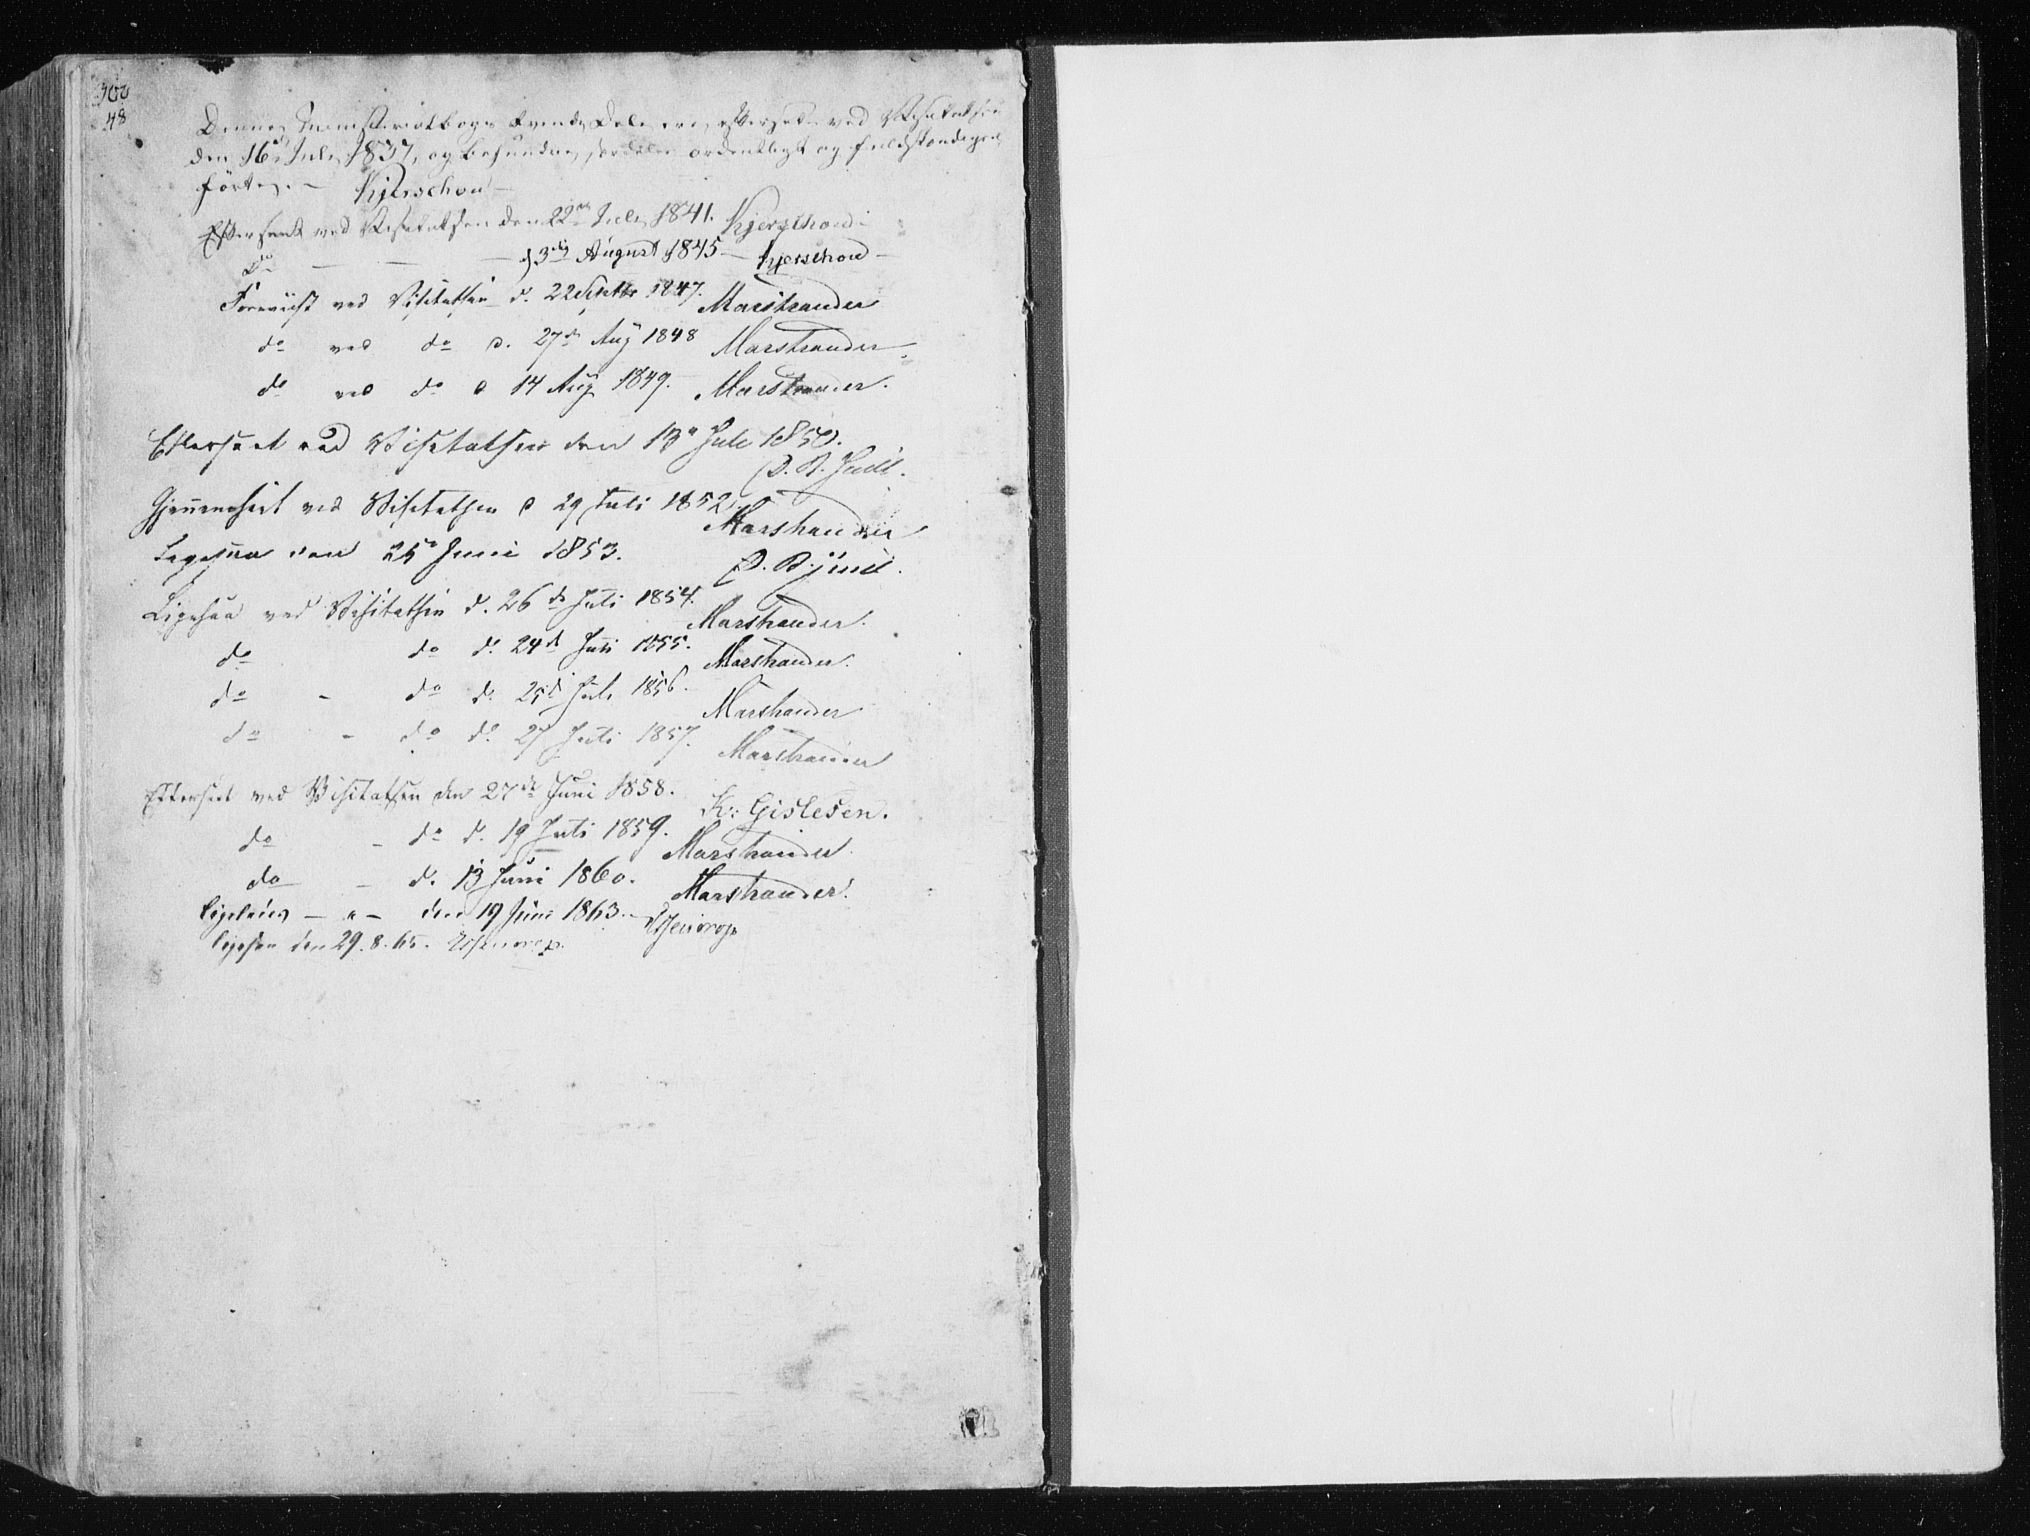 302
48
Denne Ministerialbogs tvende Dele ere efterseede ved Visitatsen
den 16de Juli 1837, og befundne særdeles ordentligt og fuldstændigen
førte. — Kjerschou —
Efterseet ved Visitatsen den 22de Juli 1841. Kjerschou
Do — — — d 3die August 1845 — Kjerschou —
Foreviist ved Visitatsen d. 22 Septbr 1847. Marstrander
do ved do d. 27de Aug 1848 Marstrander.
do ved do d 14 Aug 1849. Marstrander.
Efterseet ved Visitatsen den 13de Juli 1850.
P. B. Juul.
Gjennemseet ved Visitatsen d 29 Juli 1852. Marstrander
Ligesaa den 25de Juni 1853. P. B. Juul.
Ligesaa ved Visitatsen d. 26de Juli 1854. Marstrander.
do do d. 24de Juli 1855. Marstrander.
do - do d. 25d Juli 1856. Marstrander
do - do d. 27 Juli 1857. Marstrander
Efterseet ved Visitatsen den 27de Juni 1858. K: Gislesen.
do - do d. 19 Juli 1859. Marstrander
do - d. 13 Juni 1860. Marstrander.
ligeledes — " — den 19 Juni 1863. —
ligesaa den 29.8.65.